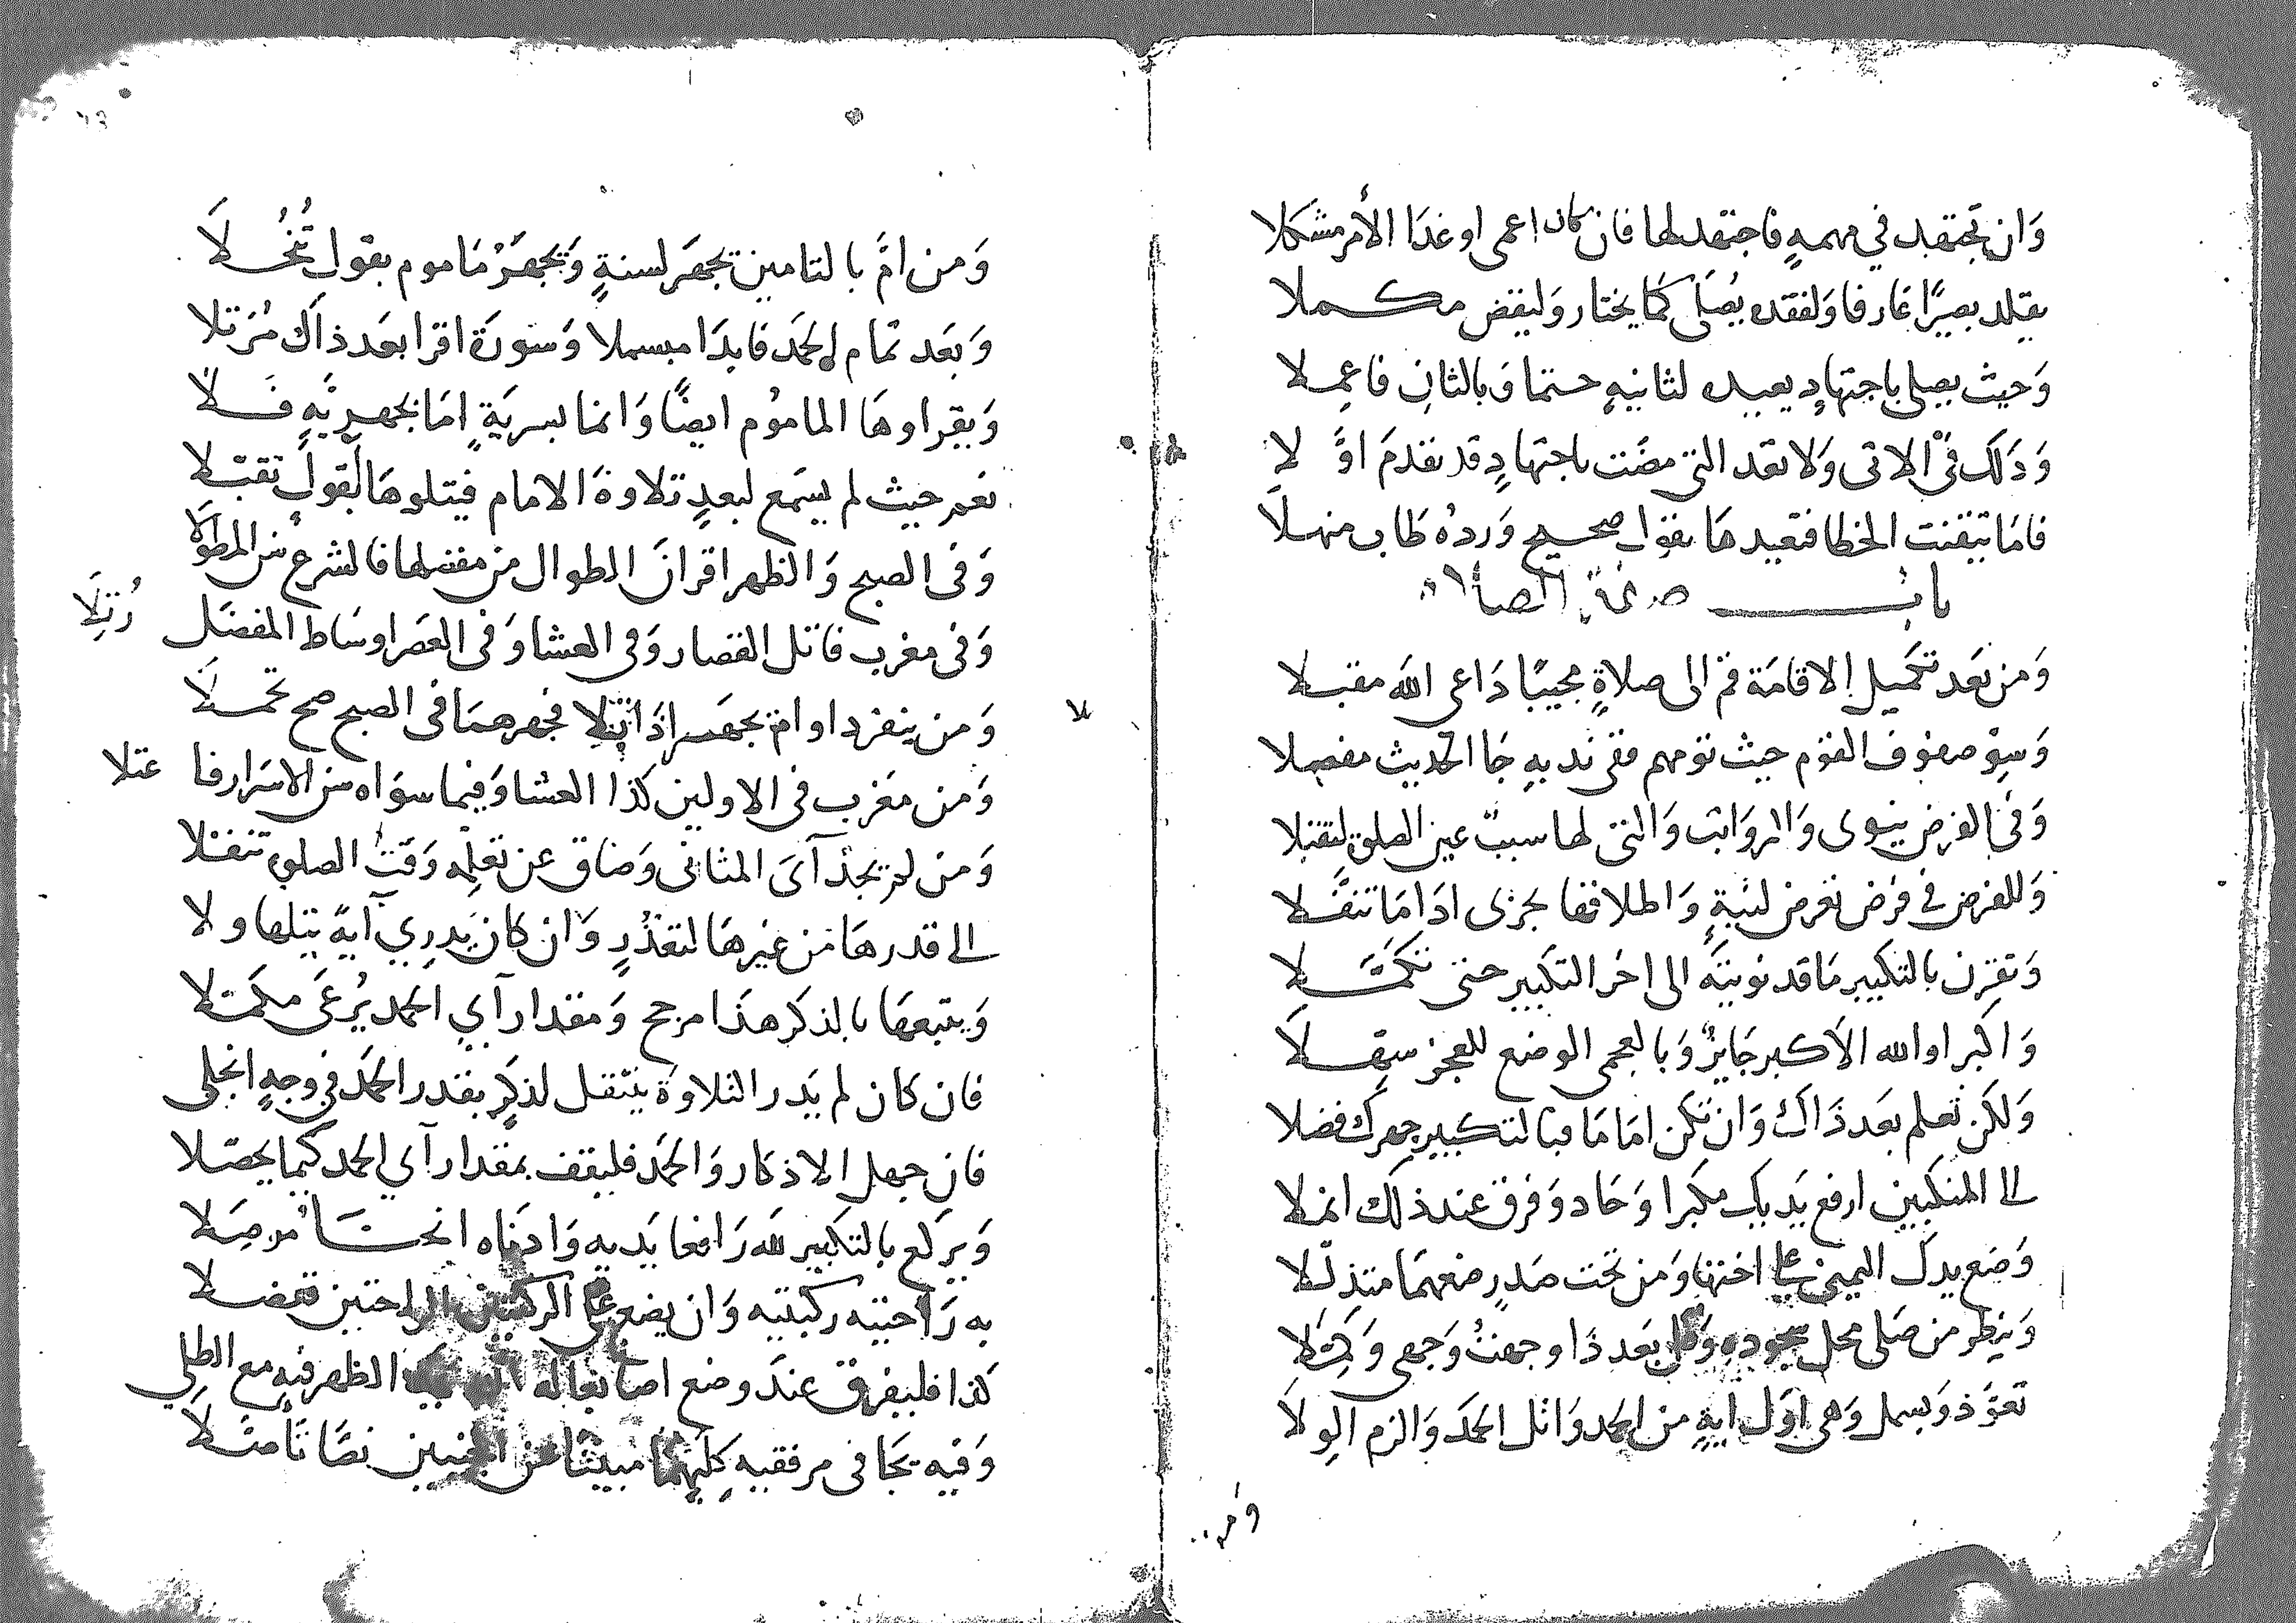 وَان تجتهد في مهمهٍ فاجتهد لها فان كان اعمى او غدَا الأمر مشكلا
يقلد بصيرًا عَارفا وَلفقده يُصَلى كمَا يختار وَليقض مكملا
وَحيث يصلى باجتهادٍ يعيده لثانيهٍ حتما وَبالثانِ فاعملا
وَذلك في الاتى وَلا تعد التى مضَت باجتهادٍ قد تقدمَ اوَّلا
فامَا تيقنت الخطا فتعيدهَا بقول صحيح وَردهُ طَاب منهلَا
باب صفة الصلاة
وَمن بَعد تكميل الاقامَة قم الى صلاةٍ مجيبًا دَاعى الله مقبلا
وَسوّ صفوف القوم حيث تومهم ففى ندبهِ جَا الحديث مفصلا
وَفى الفرض ينوى وَالرواتب وَالتى لها سببٌ عين الصلوة لتقبلا
وَللفرض في فرض تعرض لنيةٍ وَاطلاقها يجزى اذَا مَا تنفَّلا
وَتقرن بالتكبير مَا قد نويتَه الى اخر التكبير حتى تكمَّلا
وَاكبر او الله الاكبر جَايزٌ وَبالعجمى الوضع للعجز سهلَا
وَلكن تعلم بعَد ذَاك وَان تكن امَامَا فبالتكبير جهرك فضلا
الى المنكبين ارفع يَديك مكبرا وَحَاد وَفرق عند ذلك انملا
وَضع يدك اليمنى على اختها وَمن تحت صَدرٍ ضعهمَا متذلّلا
وَينظر من صَلى محل سجوده وَقل بَعد ذَا وجهتُ وَجهى وَكمّلا
تعوَّذ وَبسمل وَهى اوّل ايةٍ من الحمد وَاتل الحمَد وَالزم الوِلا
وَمن
وَمن امَّ بالتامين يجهَر لسنةٍ وَيجهَرْ مَاموم بقول تُنُخّلَا
وَبعَد تمَام الحمَد فابدَا مبسملا وَسورَة اقرا بعَد ذاك مُرَتلا
وَيقراوهَا المامُوم ايضًا وَانما بسريَةٍ امَا بجهريّهٍ فَلا
نعم حيث لم يسمَع لبعدٍ تلاوةَ الامام فيتلوهَا لقول تقبّلا
وَفى الصبح وَالظهر اقرانَ الطوال من مفصلها فالشرع سن المطولا
وَفى مغرب فاتل القصار وَفى العشا وَفى العَصر اوسَاط المفصَل رُتِلَا
وَمن ينفرد او امّ يجهَر اذَا تلا فجهرهمَا فى الصبح صح تحملَا
وَمن مَغرب فى الاولين كذا العشا وَفيما سوَاه سن الاسَرار فاعتلا
وَمن لم يجدْ آىَ المثانى وَضاق عن تعلّمه وَقتُ الصلوة تنقلا
الى قدرهَا من غيرهَا لتعذُرٍ وَان كان يَدري آيةً يتلها ولا
وَيتبعهَا بالذكر هذَا مرجح وَمقدار آي الحمد يُرعَى مكمَلا
فان كان لم يَدر التلاوةَ ينتقل لذكرٍ بقدر الحمَد في وجهٍ انجلى
فان جهل الاذكار وَالحمَد فليقف بمقدار آي الحمد كيما يحصّلا
وَيركع بالتكبير لله رَافعا يَديه وَادنَاه انحنَا مُوصِلا
به رَاحتيه ركبتيه وَان يضع على الركبتين الراحتين تفضلا
كذا فليفرق عندَ وضع اصابعا له الظهر فيه مع الطلى
وَفيه يجَافى مرفقيه كليهمَا مبينًا عن الجنبين نصًا تَأَصّلَا